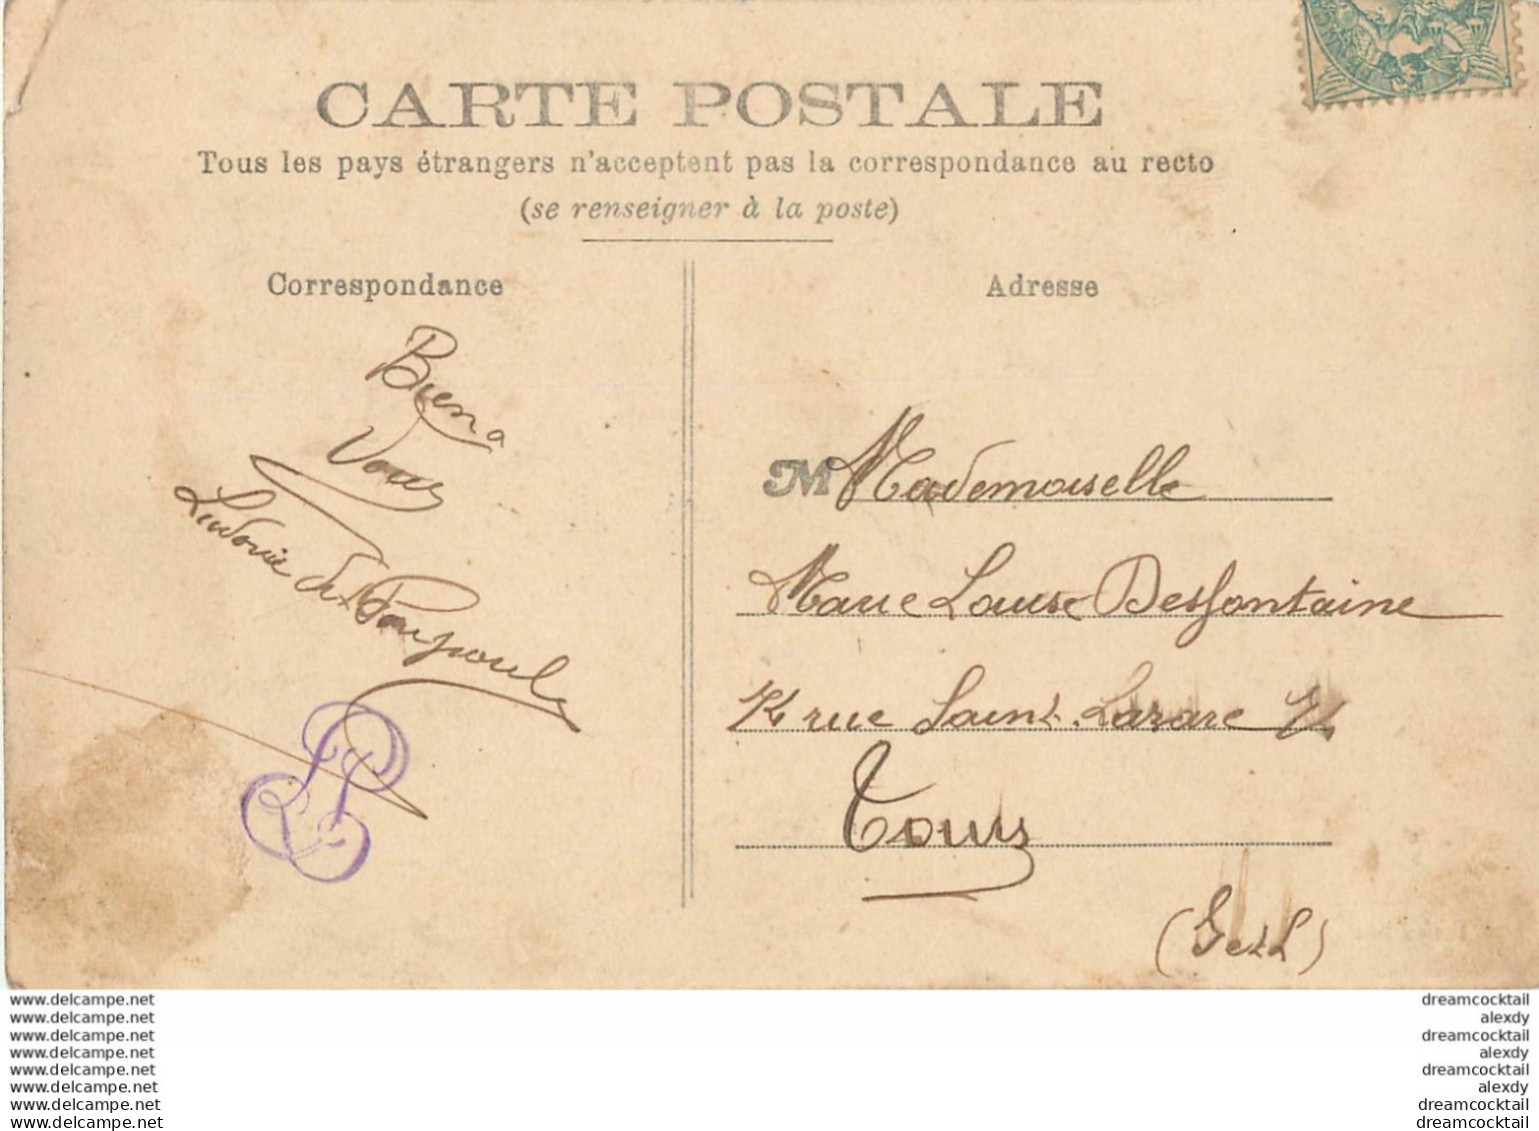 CARTE POSTALE
Tous les pays étrangers n'acceptent pas la correspondance au recto
(se renseigner à la poste)
Correspondance
Adresse
Bien a
Vous
Ludovic de
LP
M Mademoiselle
Marie Louise Desfontaine
rue Saint Lazare
Tours
(I et L)
www.delcampe.net
www.delcampe.net
www.delcampe.net
www.delcampe.net
www.delcampe.net
www.delcampe.net
www.delcampe.net
www.delcampe.net
dreamcocktail
alexdy
dreamcocktail
alexdy
dreamcocktail
alexdy
dreamcocktail
dreamcocktail